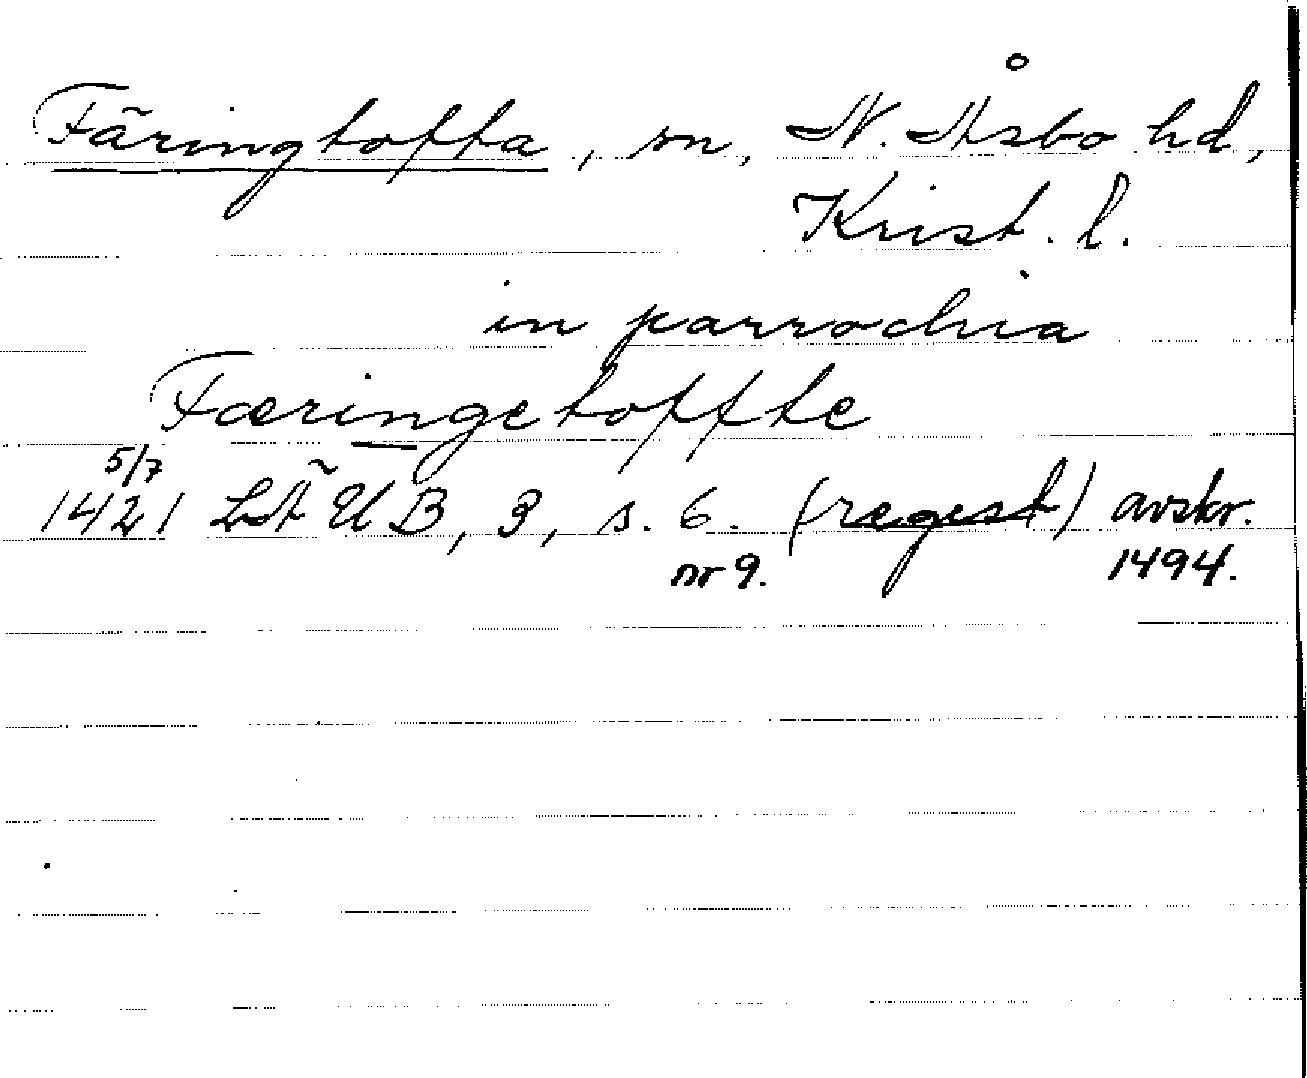 Färingtofta, sn, N. Åsbo hd,
Krist. l.
in parrochia
Færingetoffte
5/7
1421 LÄUB, 3, s. 6. (regest) avskr.
nr 9. 1494.